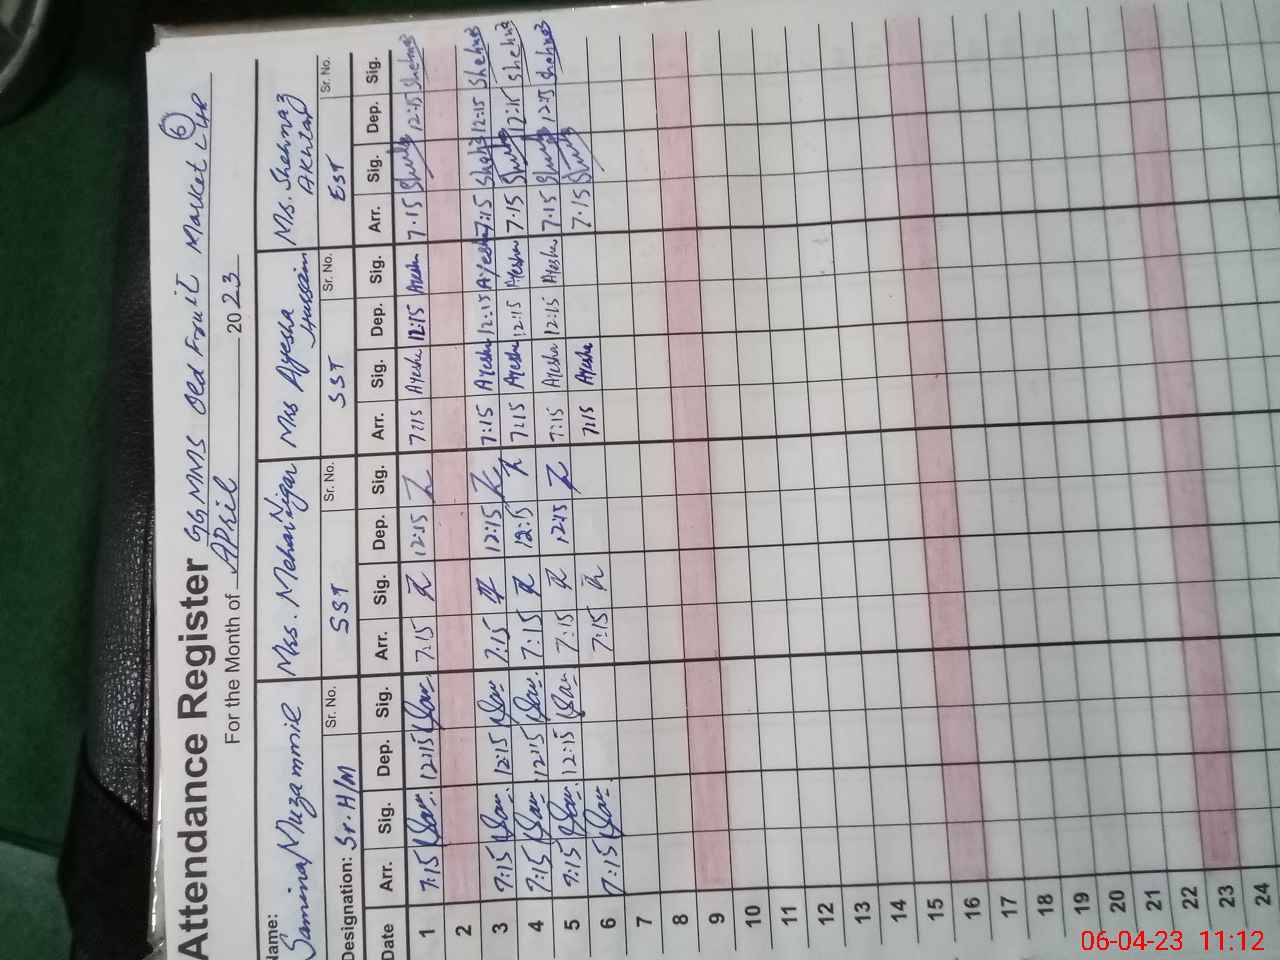 Attendance Register GGMMS Old Fruit Market LHR 6
For the Month of April 2023
Name: Samina Muzammil Mrs. Mehar Nigar Mrs Ayesha Hussain Ms. Shehnaz Akhtar
Designation: Sr. H/M Sr. No. SST Sr. No. SST Sr. No. EST Sr. No.
Date Arr. Sig. Dep. Sig. Arr. Sig. Dep. Sig. Arr. Sig. Dep. Sig. Arr. Sig. Dep. Sig.
1 7:15 12:15 7:15 12:15 7:15 Ayesha 12:15 Ayesha 7:15 12:15 Shehnaz
2
3 7:15 12:15 7:15 12:15 7:15 Ayesha 12:15 Ayesha 7:15 12:15 Shehnaz
4 7:15 12:15 7:15 12:15 7:15 Ayesha 12:15 Ayesha 7:15 12:15 Shehnaz
5 7:15 12:15 7:15 12:15 7:15 Ayesha 12:15 Ayesha 7:15 12:15 Shehnaz
6 7:15 7:15 7:15 Ayesha 7:15
7
8
9
10
11
12
13
14
15
16
17
18
19
20
21
22
23
24
06-04-23 11:12